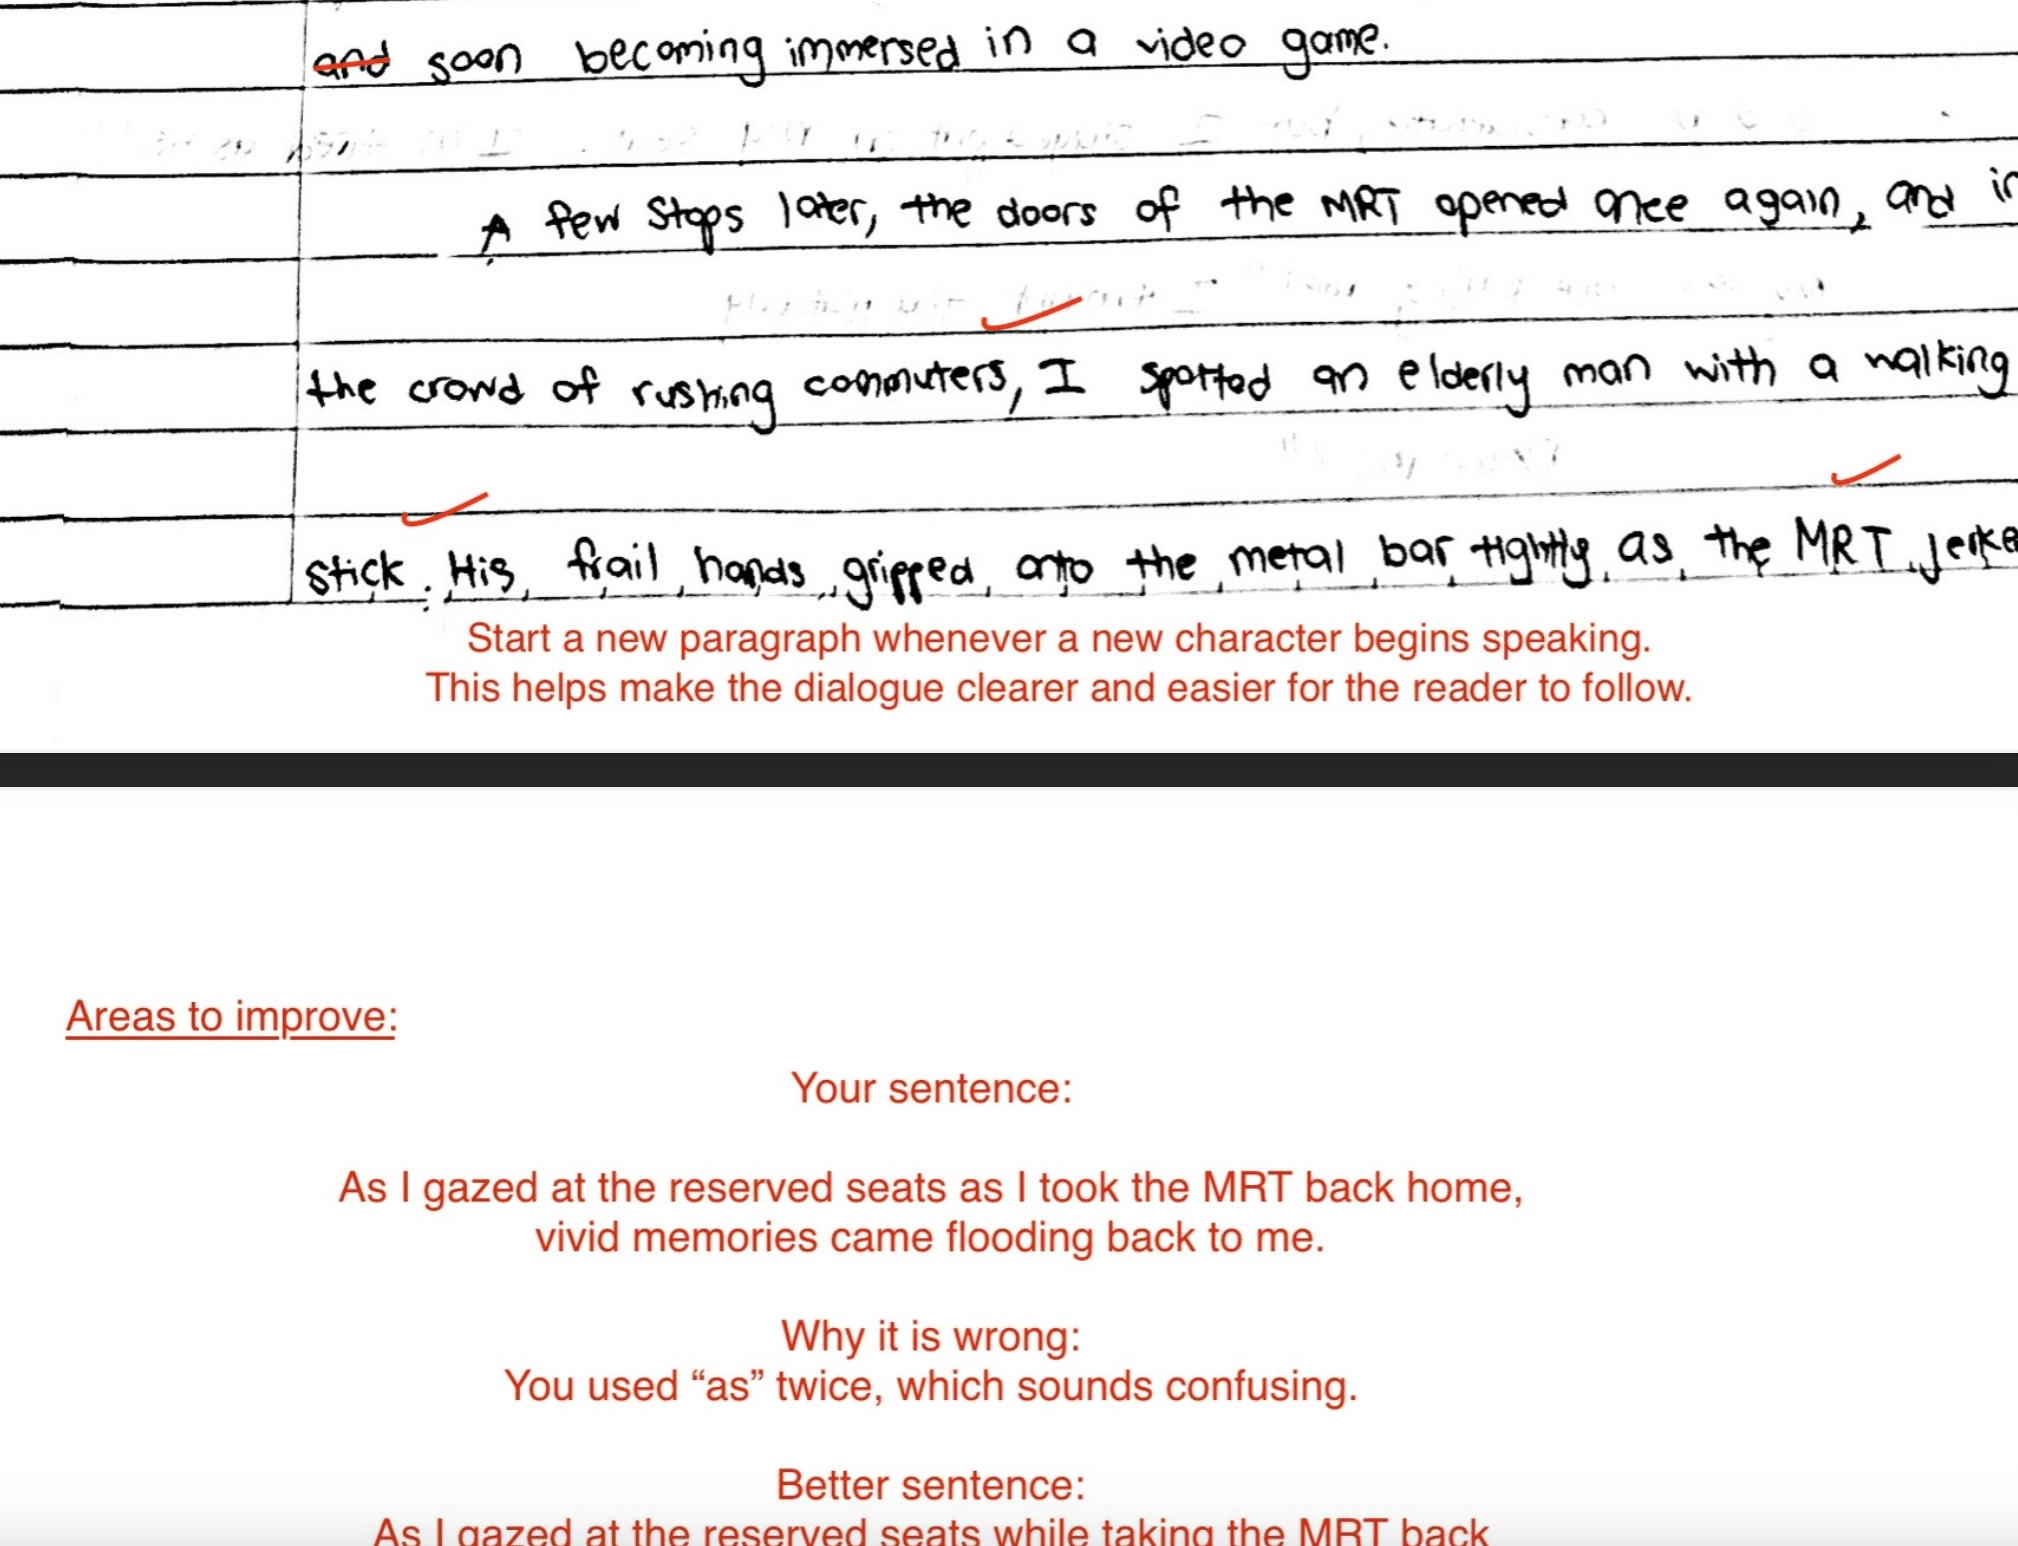 and soon becoming immersed in a video game.
A few stops later, the doors of the MRT opened once again, and in
the crowd of rushing commuters, I spotted an elderly man with a walking
stick. His frail hands gripped onto the metal bar tightly as the MRT jerke
Start a new paragraph whenever a new character begins speaking.
This helps make the dialogue clearer and easier for the reader to follow.
Areas to improve:
Your sentence:
As I gazed at the reserved seats as I took the MRT back home,
vivid memories came flooding back to me.
Why it is wrong:
You used “as” twice, which sounds confusing.
Better sentence:
As I gazed at the reserved seats while taking the MRT back